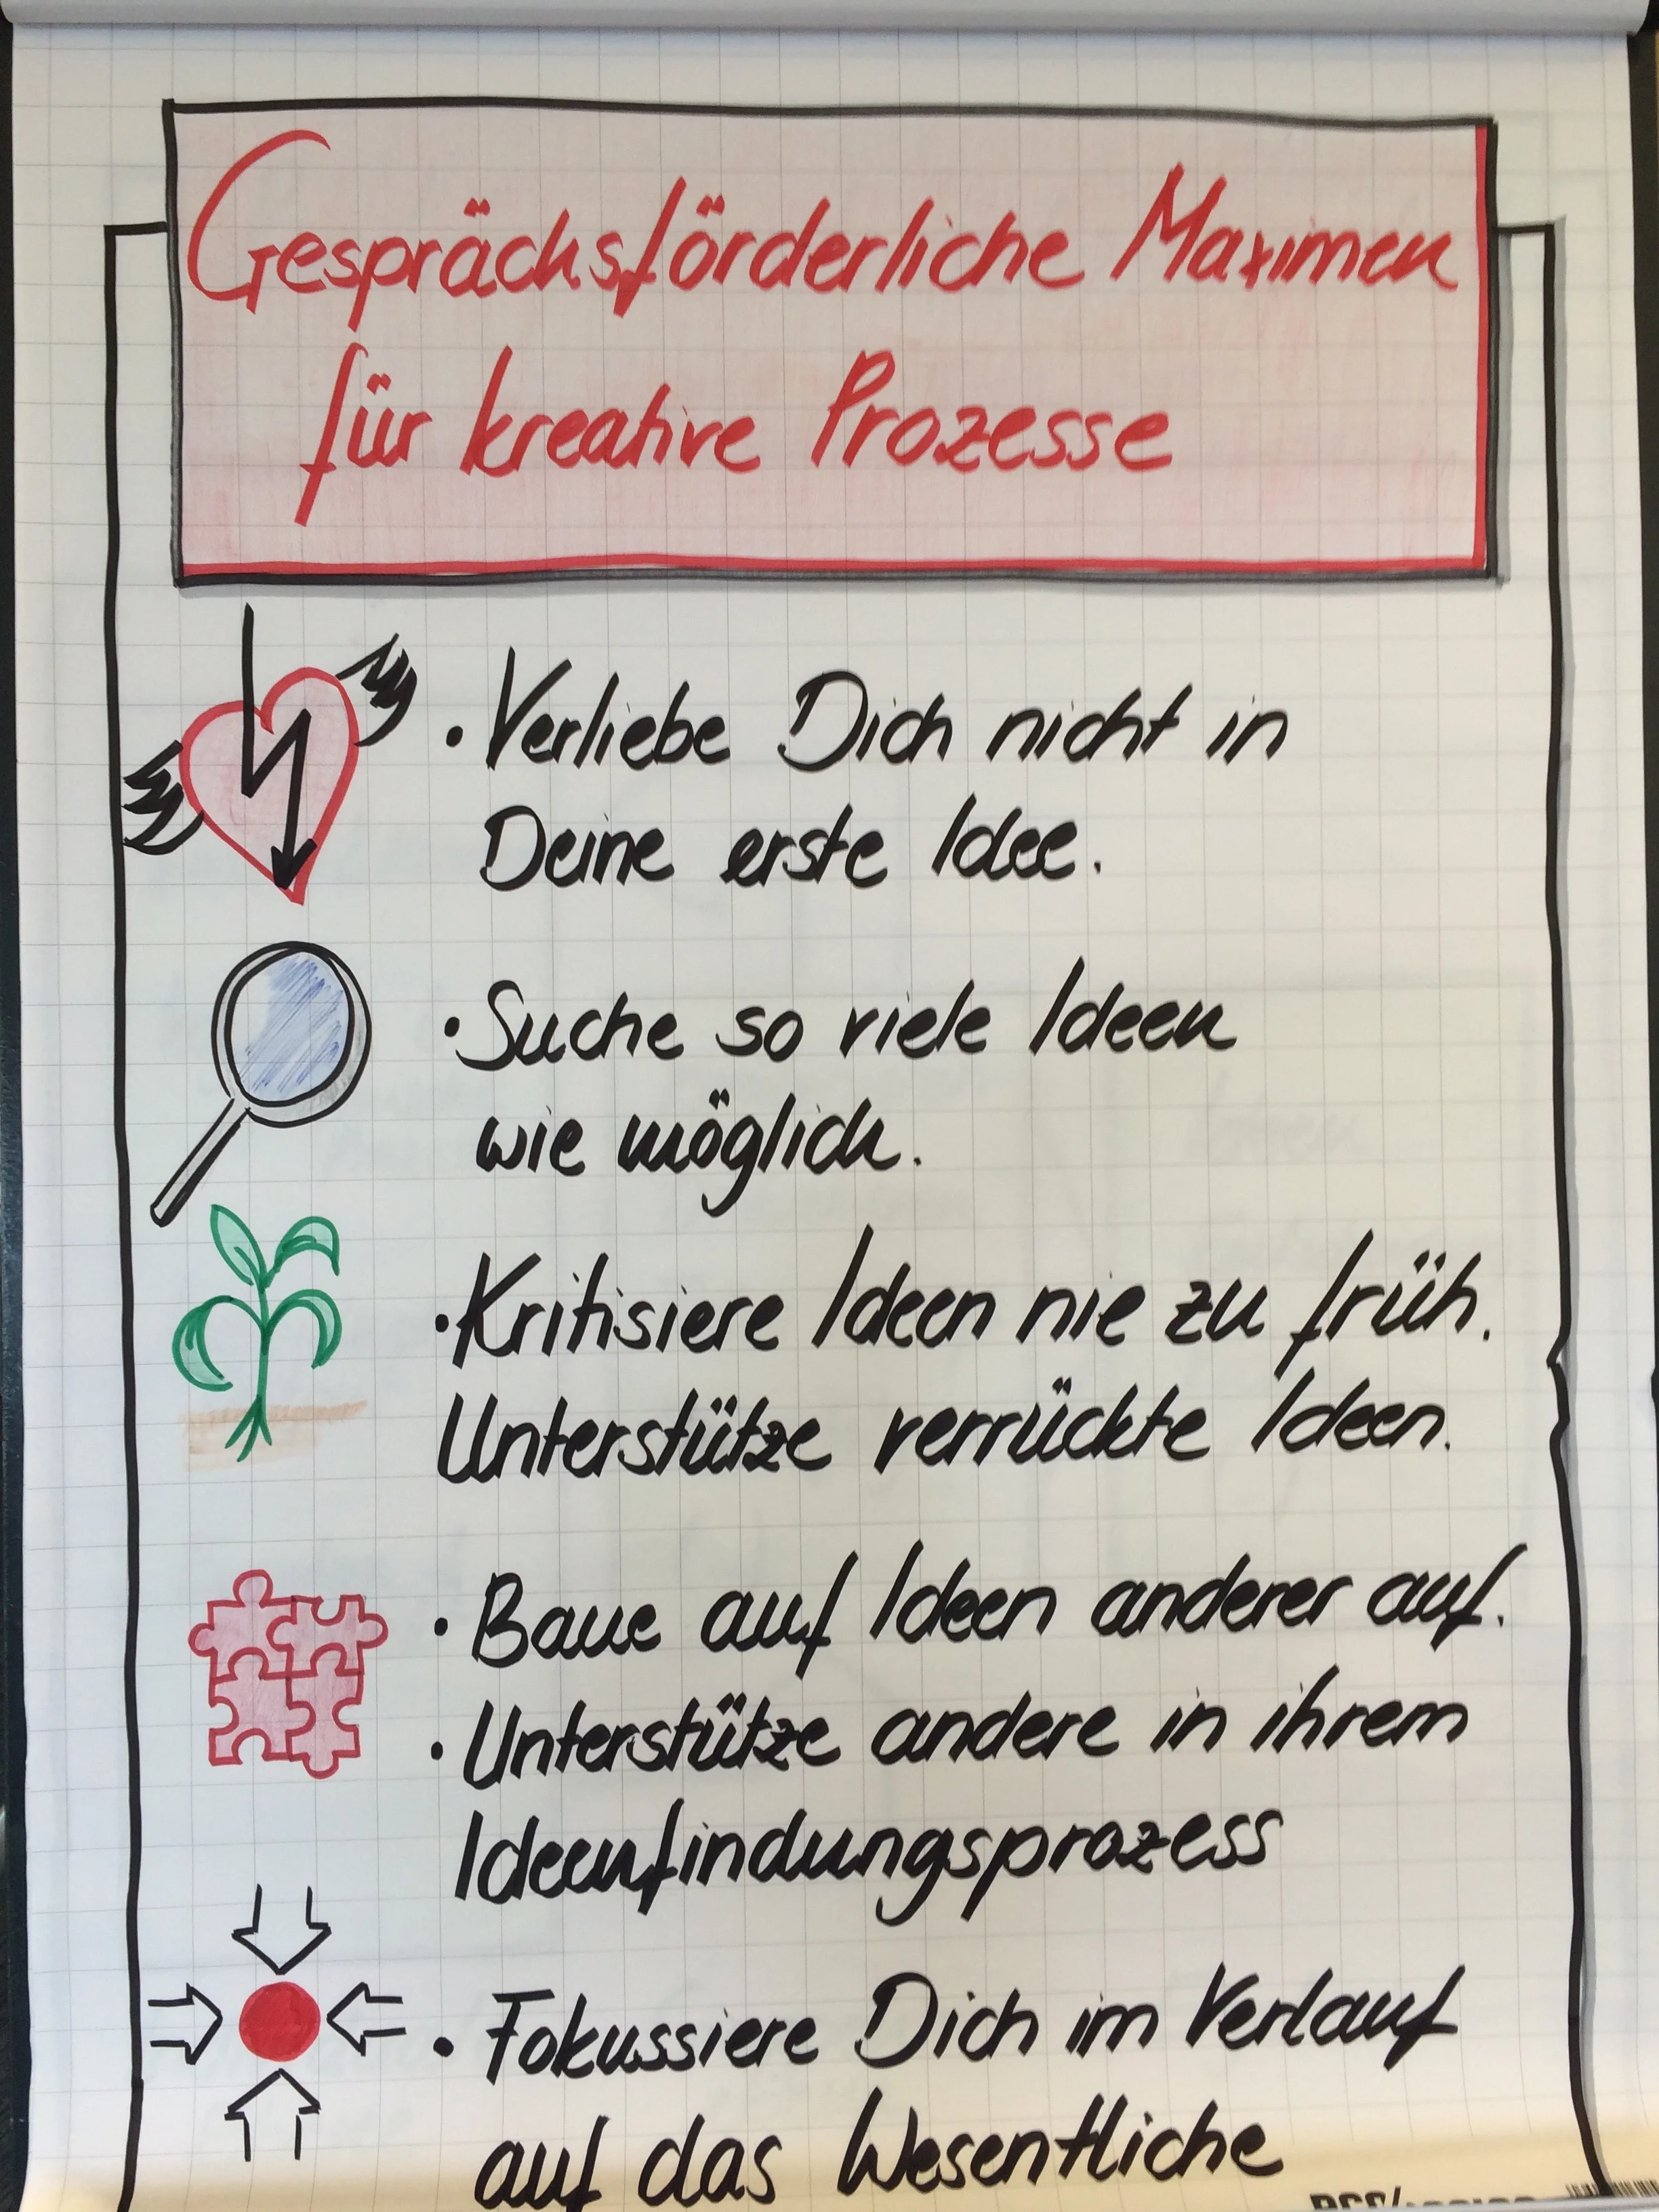 Gesprächsförderliche Maximen
für kreative Prozesse
• Verliebe Dich nicht in
Deine erste Idee.
• Suche so viele Ideen
wie möglich.
• Kritisiere Ideen nie zu früh.
Unterstütze verrückte Ideen.
• Baue auf Ideen anderer auf.
• Unterstütze andere in ihrem
Ideenfindungsprozess
• Fokussiere Dich im Verlauf
auf das Wesentliche